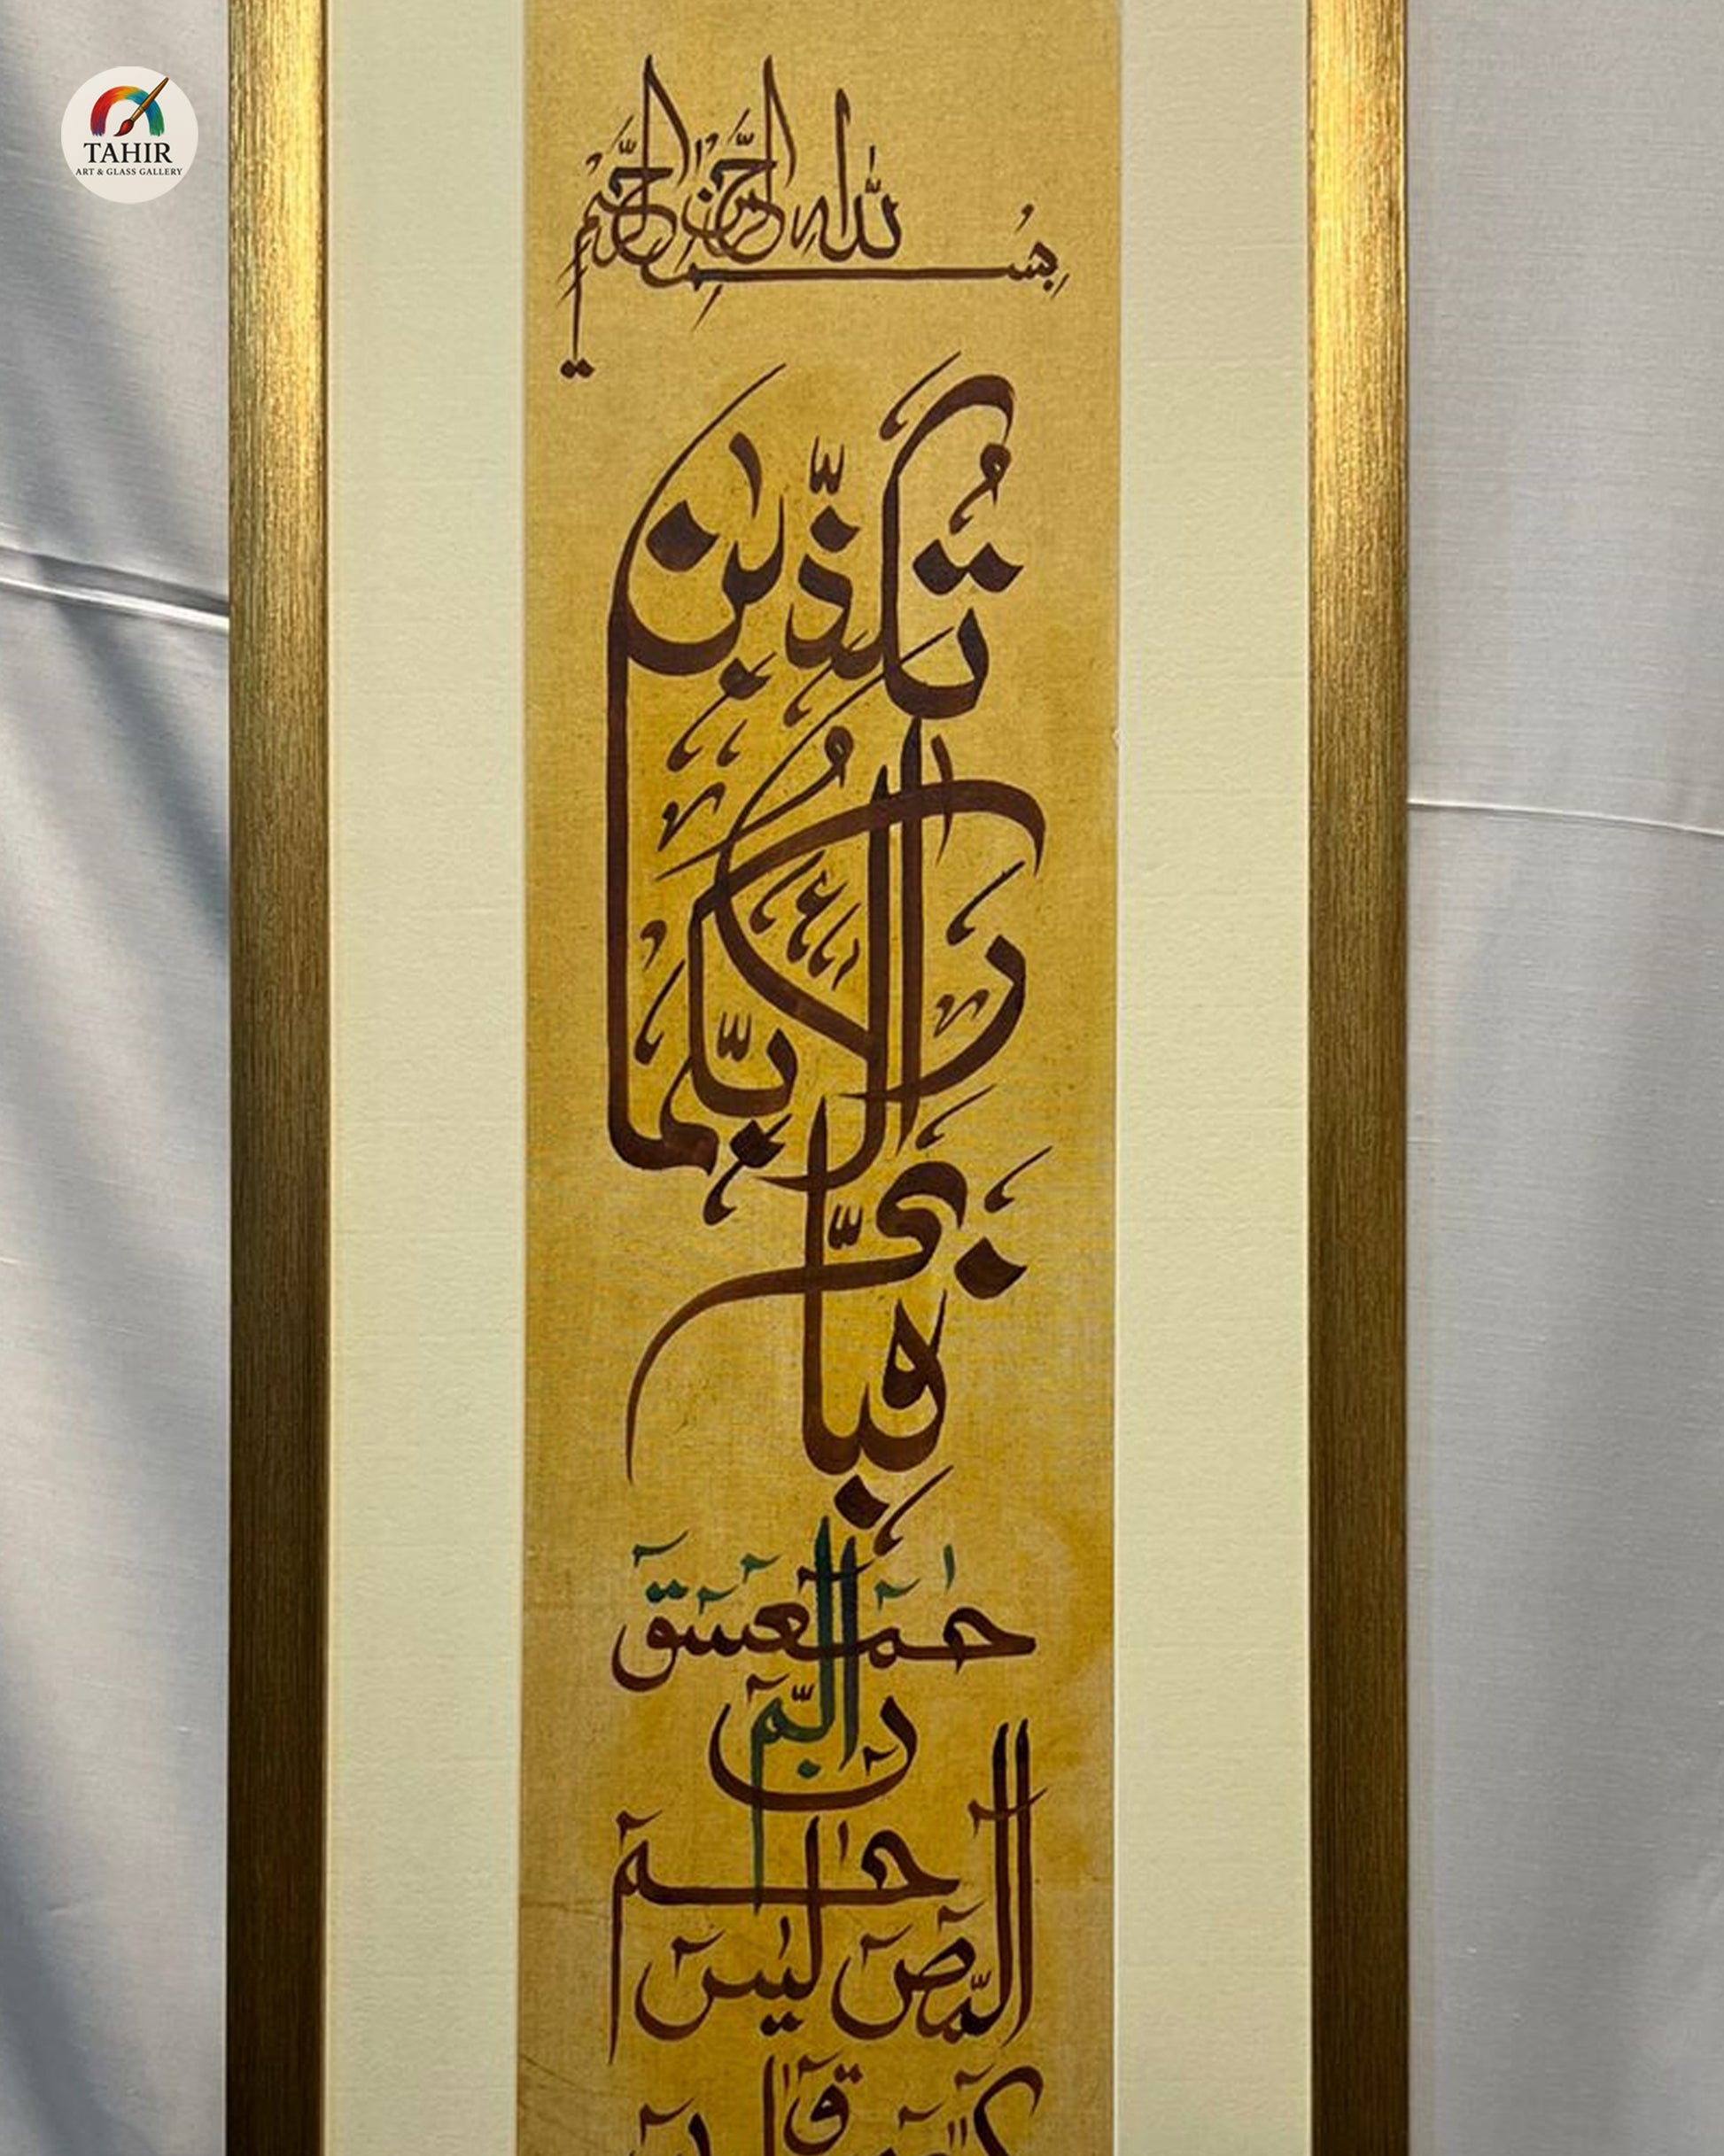 TAHIR
ART & GLASS GALLERY
بِسْمِ اللهِ الرَّحْمٰنِ الرَّحِيْمِ
فَبِاَيِّ اٰلَآءِ رَبِّكُمَا تُكَذِّبٰنِ
حٰمٓعٓسٓقٓ
نٓ الٓمّٓ
حٰمٓ
الٓمّٓصٓ يٰسٓ
قٓ